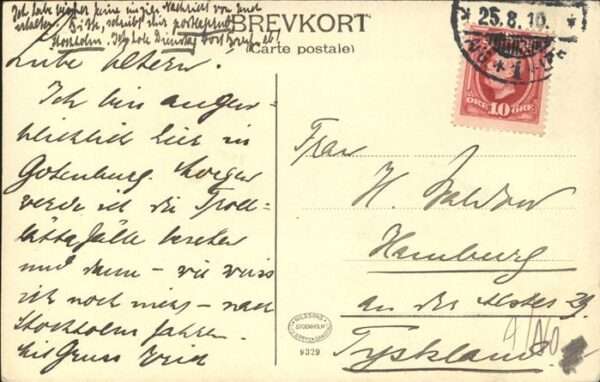 Ich habe bisher keine einzige Nachricht von Euch
erhalten. Bitte, schreibt mir postlagernd
Stockholm. Ich hole Dienstag dort Brief ab!
BREVKORT
(Carte postale)
Liebe Eltern!
Ich bin augen-
blicklich hier in
Gotenburg. Morgen
werde ich die Troll-
hättafälle besehen
und dann – wie weiss
ich noch nicht – nach
Stockholm fahren.
Mit Gruss Erich
25.8.10.
1
ÖRE 10 ÖRE
Frau
H. Waldow
Hamburg
an der Alster 29
Tyskland
STOCKHOLM
9329